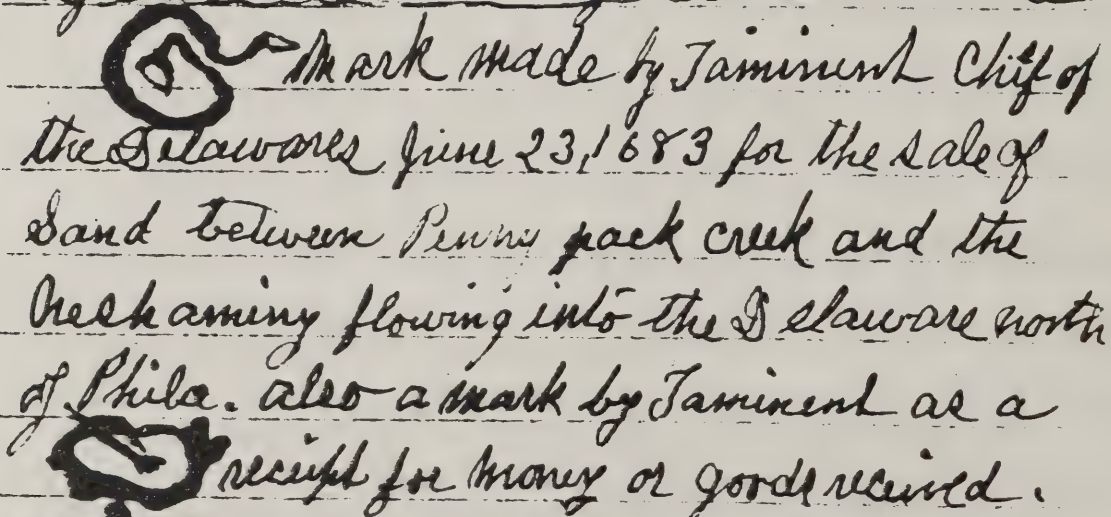 Mark made by Taminent Chif of
the Delawares June 23, 1683 for the sale of
Land between Penny pack creek and the
Neshaminy flowing into the Delaware north
of Phila. also a mark by Taminent as a
receipt for money or goods received.